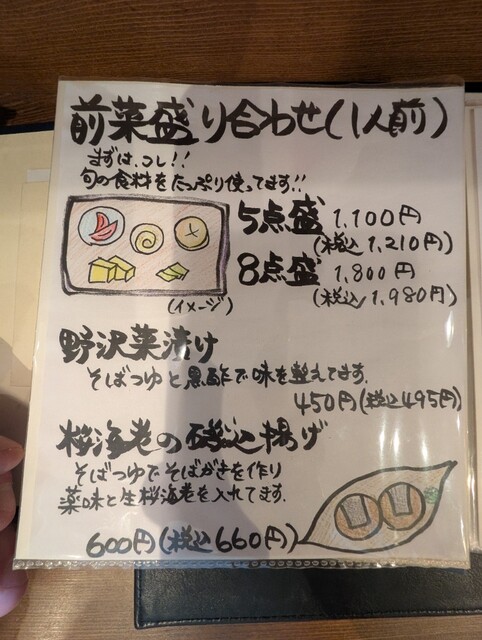 前菜盛り合わせ(1人前)
まずは、コレ!!
旬の食料をたっぷり使ってます!!
5点盛 1,100円
(税込 1,210円)
8点盛 1,800円
(税込 1,980円)
(イメージ)
野沢菜漬け
そばつゆと黒酢で味を整えてます。
450円(税込495円)
桜海老の磯辺揚げ
そばつゆでそばがきを作り
薬味と生桜海老を入れてます。
600円(税込660円)